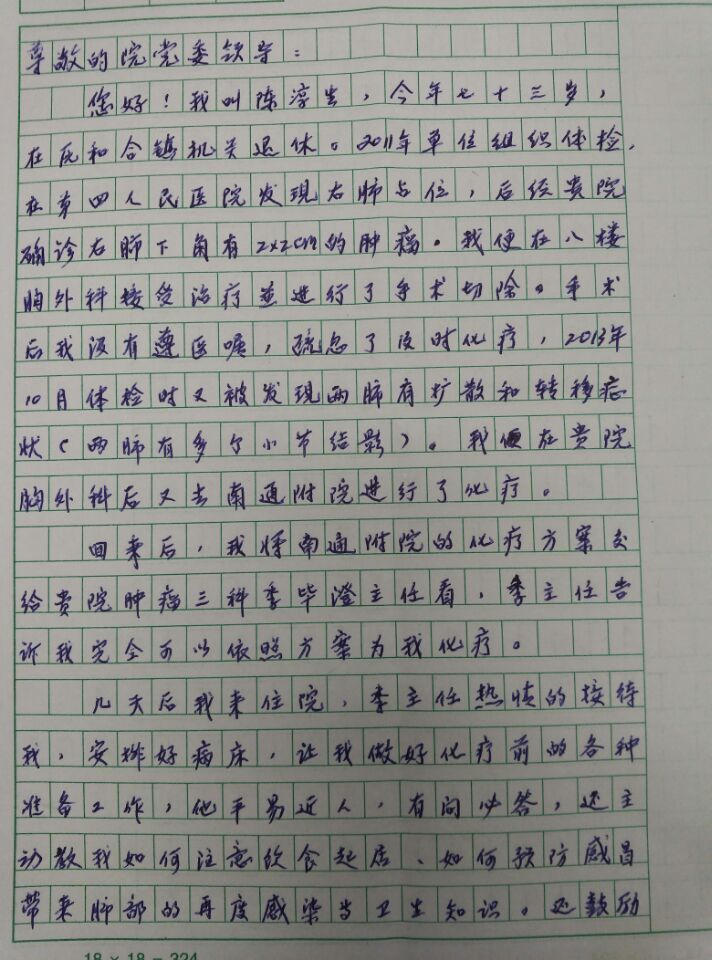 尊敬的院党委领导：
您好！我叫陈淳生，今年七十三岁，
在瓦和合镇机关退休。2011年单位组织体检，
在第四人民医院发现右肺占位，后经贵院
确诊右肺下角有2×2cm的肿瘤。我便在八楼
胸外科接受治疗并进行了手术切除。手术
后我没有遵医嘱，疏忽了及时化疗，2013年
10月体检时又被发现两肺有扩散和转移症
状（两肺有多个小节结影）。我便在贵院
胸外科后又去南通附院进行了化疗。
回来后，我将南通附院的化疗方案交
给贵院肿瘤三科季毕澄主任看，季主任告
诉我完全可以依照方案为我化疗。
几天后我来住院，季主任热情的接待
我，安排好病床，让我做好化疗前的各种
准备工作，他平易近人，有问必答，还主
动教我如何注意饮食起居、如何预防感冒
带来肺部的再度感染与卫生知识。还鼓励
18×18=324